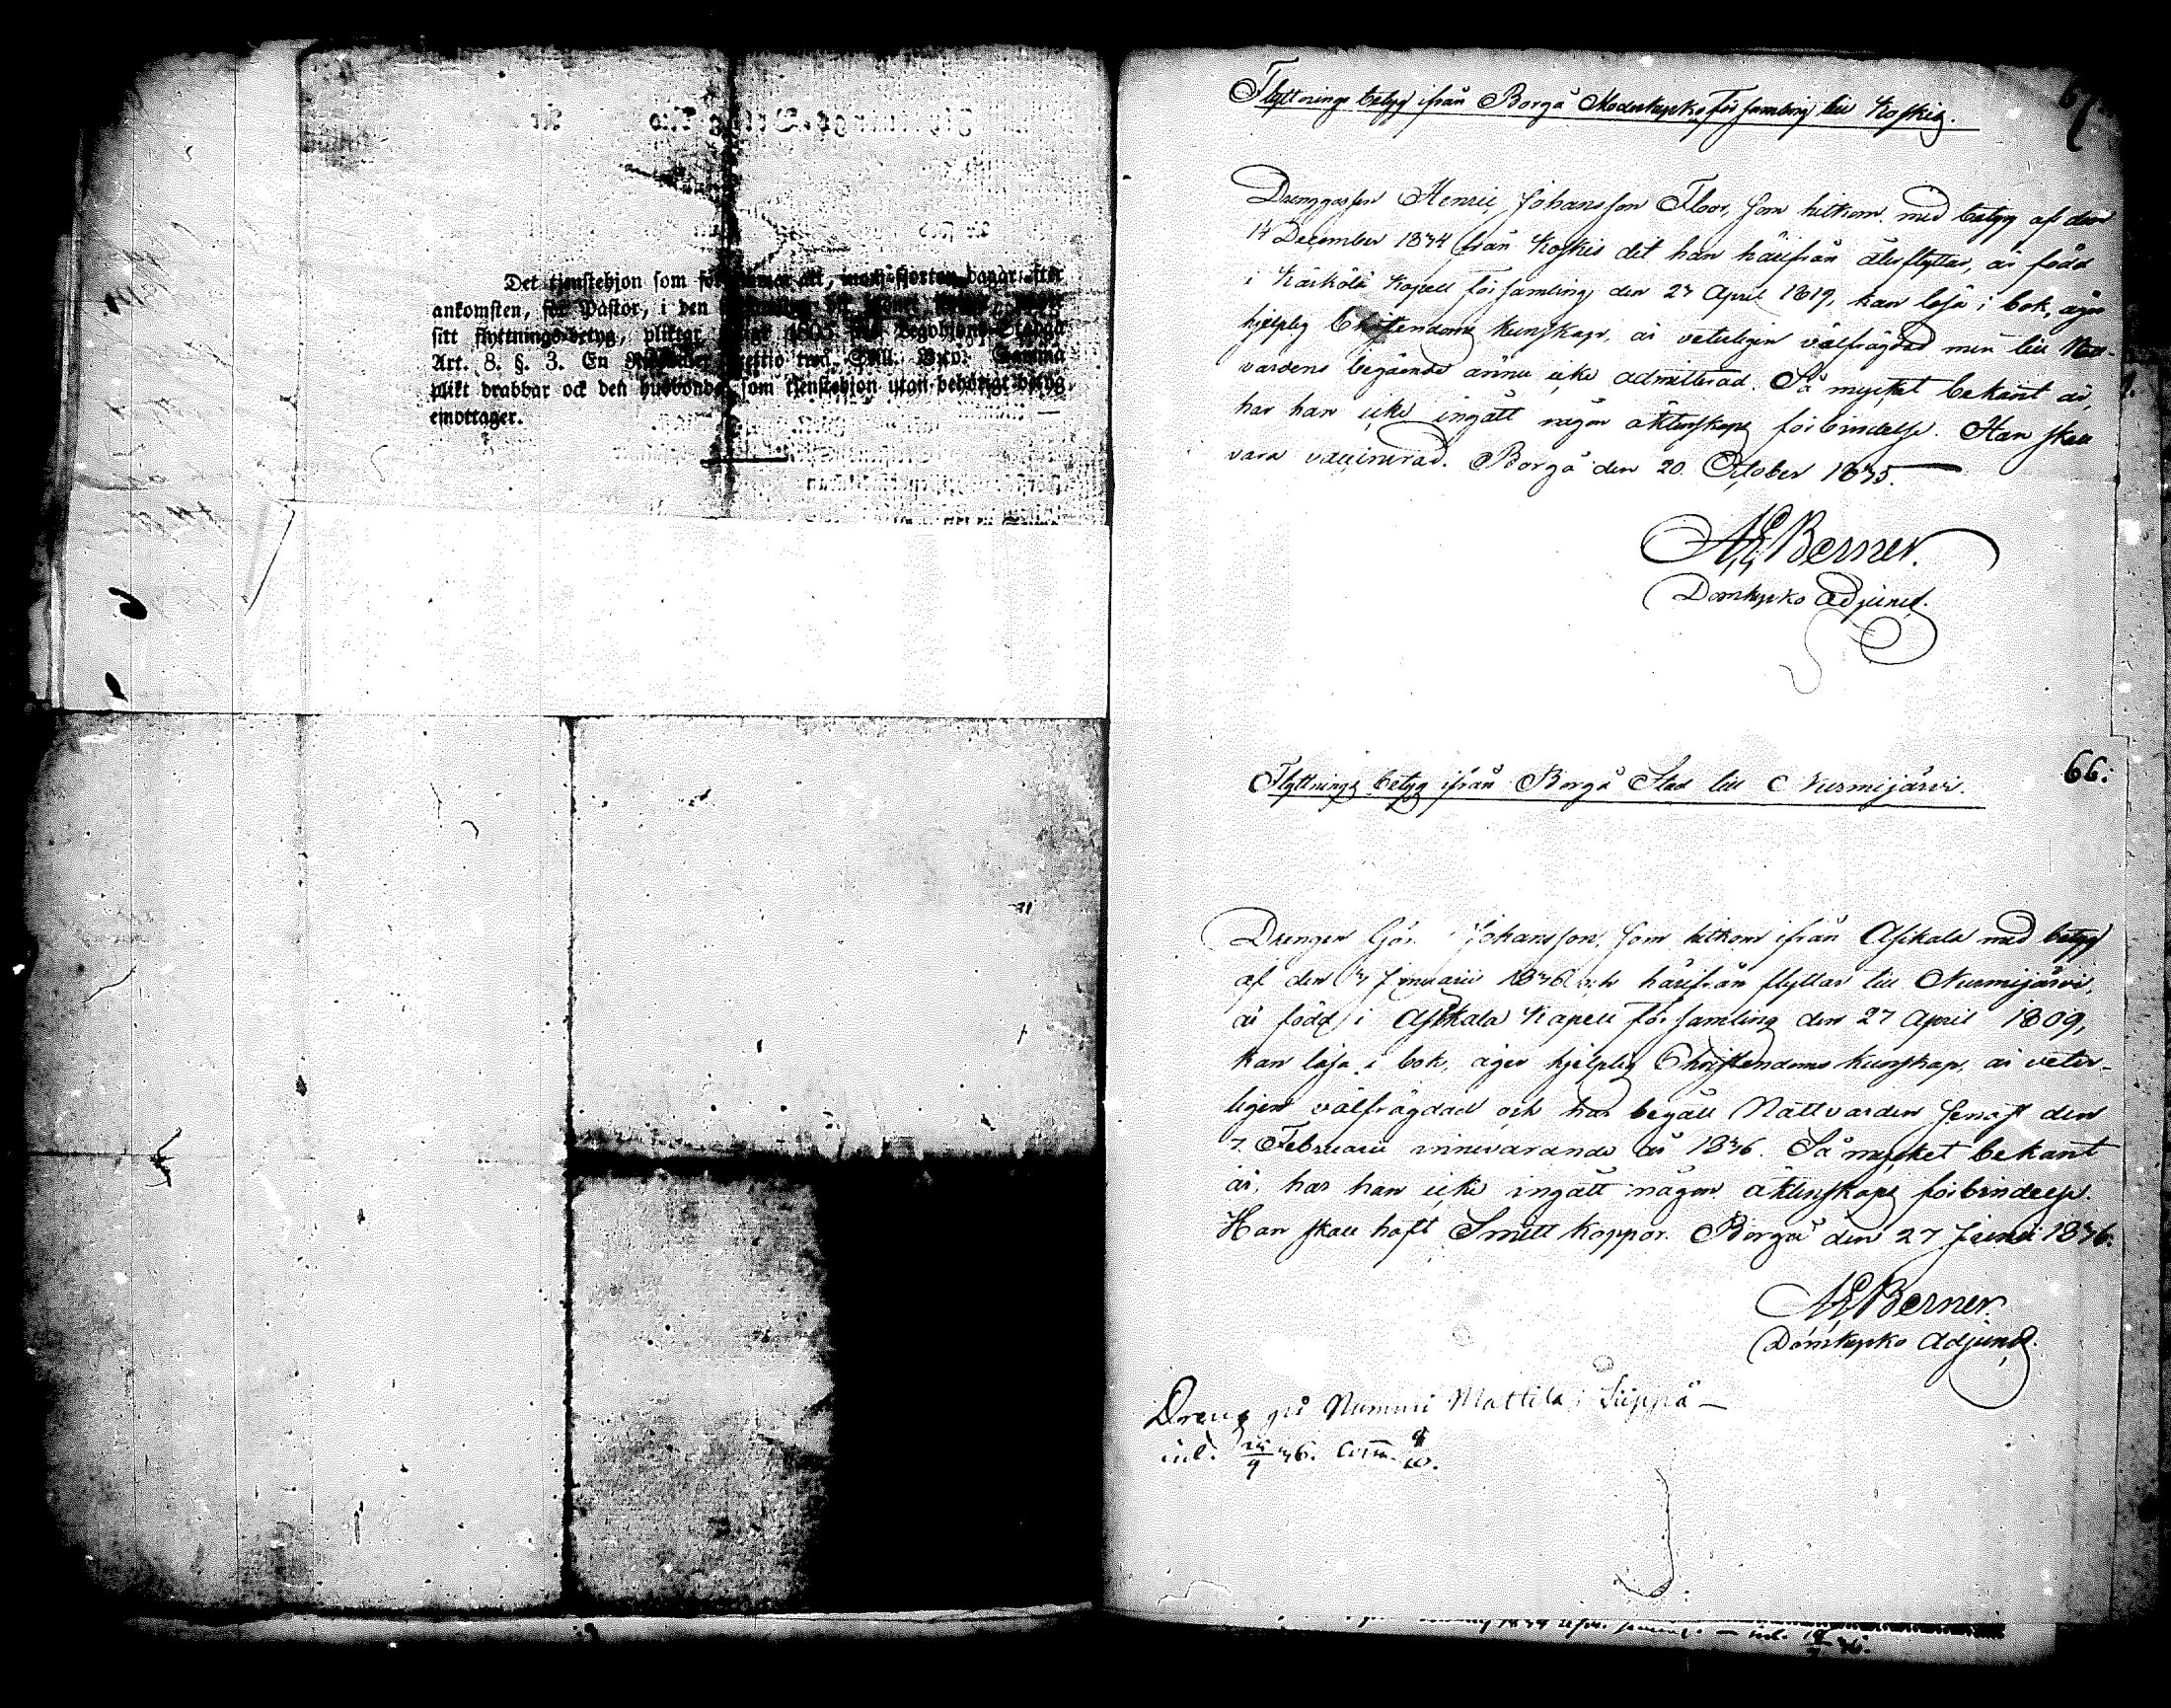 Det tjenstehjon som
ankomsten, för Pastor, i den
sitt flyttnings-betyg, pliktar
Art. 8. §. 3. En
plikt drabbar ock den husbonde som tjenstehjon utan behörigt betyg
emottager.
Flyttnings betyg ifrån Borgå Moderkyrko Församling till Koskis.
Drenggossen Henric Johansson Floor, som hitkom med betyg af den
14 December 1834 från Koskis dit han härifrån återflyttar, är född
i Kärkölä Kapell församling den 27 April 1819, kan läsa i bok, äger
hjelplig Christendoms kunskap, är veterligen välfrägdad men till Natt-
vardens begående ännu icke admitterad. Så mycket bekant är,
har han icke ingått någon äktenskaps förbindelse. Han skall
vara vaccinerad. Borgå den 20. October 1835.
Berner.
Domkyrko Adjunct.
66.
Flyttnings betyg ifrån Borgå Stad till Nurmijärvi.
Drengen Johansson, som hitkom ifrån Asikala med betyg
af den 3 Januarii 1836 och härifrån flyttar till Nurmijärvi,
är född i Asikala Kapell församling den 27 April 1809,
kan läsa i bok, äger hjelplig Christendoms kunskap, är veter-
ligen välfrägdad och har begått Nattvarden senast den
7. Februarii innevarande år 1836. Så mycket bekant
är, har han icke ingått någon äktenskaps förbindelse.
Han skall haft Smitt koppor. Borgå den 27 Junii 1836.
Berner.
Domkyrko Adjunct.
Dreng på Nummi Mattila i Siippå
inl. 36. Comm.